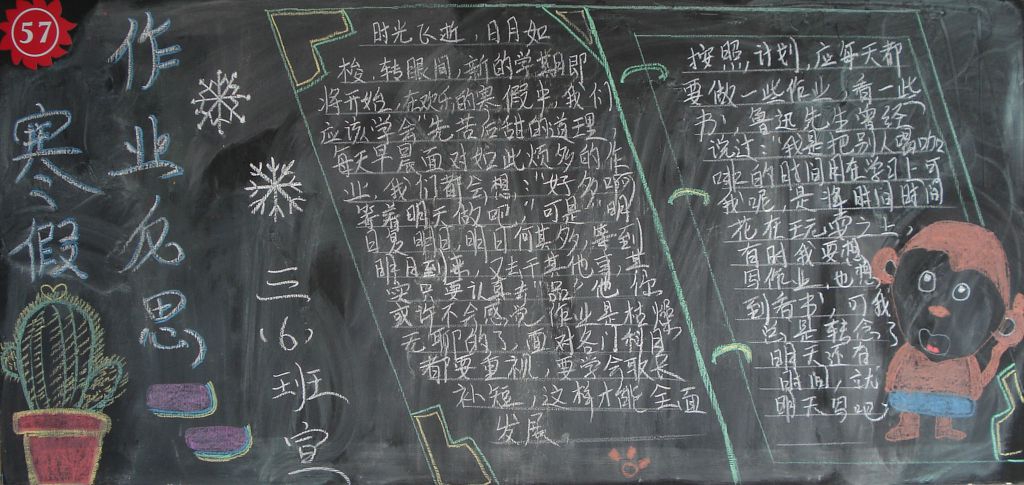 57
寒假
作业反思
三(6)班宣
时光飞逝，日月如
梭，转眼间，新的学期即
将开始，在欢乐的寒假里，我们
应该学会"先苦后甜的道理，
每天早晨面对如此烦多的作
业，我们都会想："好多啊
等着明天做吧，可是"明
日复明日，明日何其多，等到
明日到来，又去干其他事，其
实只要认真去"品"他，你
或许不会感觉，作业是枯燥
无聊的了，面对各门科目
都要重视，要学会取长
补短，这样才能全面
发展
按照，计划，应每天都
要做一些作业，看一些
书，鲁迅先生曾经
说过："我是把别人喝咖
啡的时间用在学习上可
我呢，是将时间时间
花在玩耍之上，
有时我要想
写作业，也想
到看书，可我
总是转念
明天还有
时间，就
明天写吧